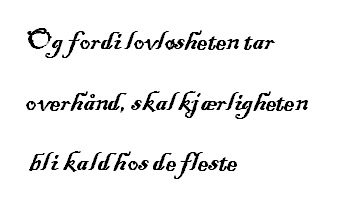 Og fordi lovløsheten tar
overhånd, skal kjærligheten
bli kald hos de fleste